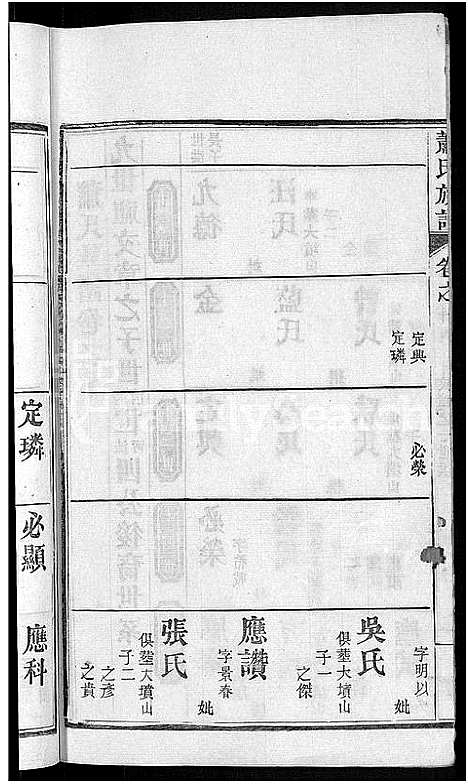 蕭氏族譜
卷之
定興
定璘
必榮
字明以
妣
吳氏
俱塟大墳山
子一
之傑
應讚
字景春
妣
張氏
俱塟大墳山
子二
之彥
之貴
定璘
必顯
應科